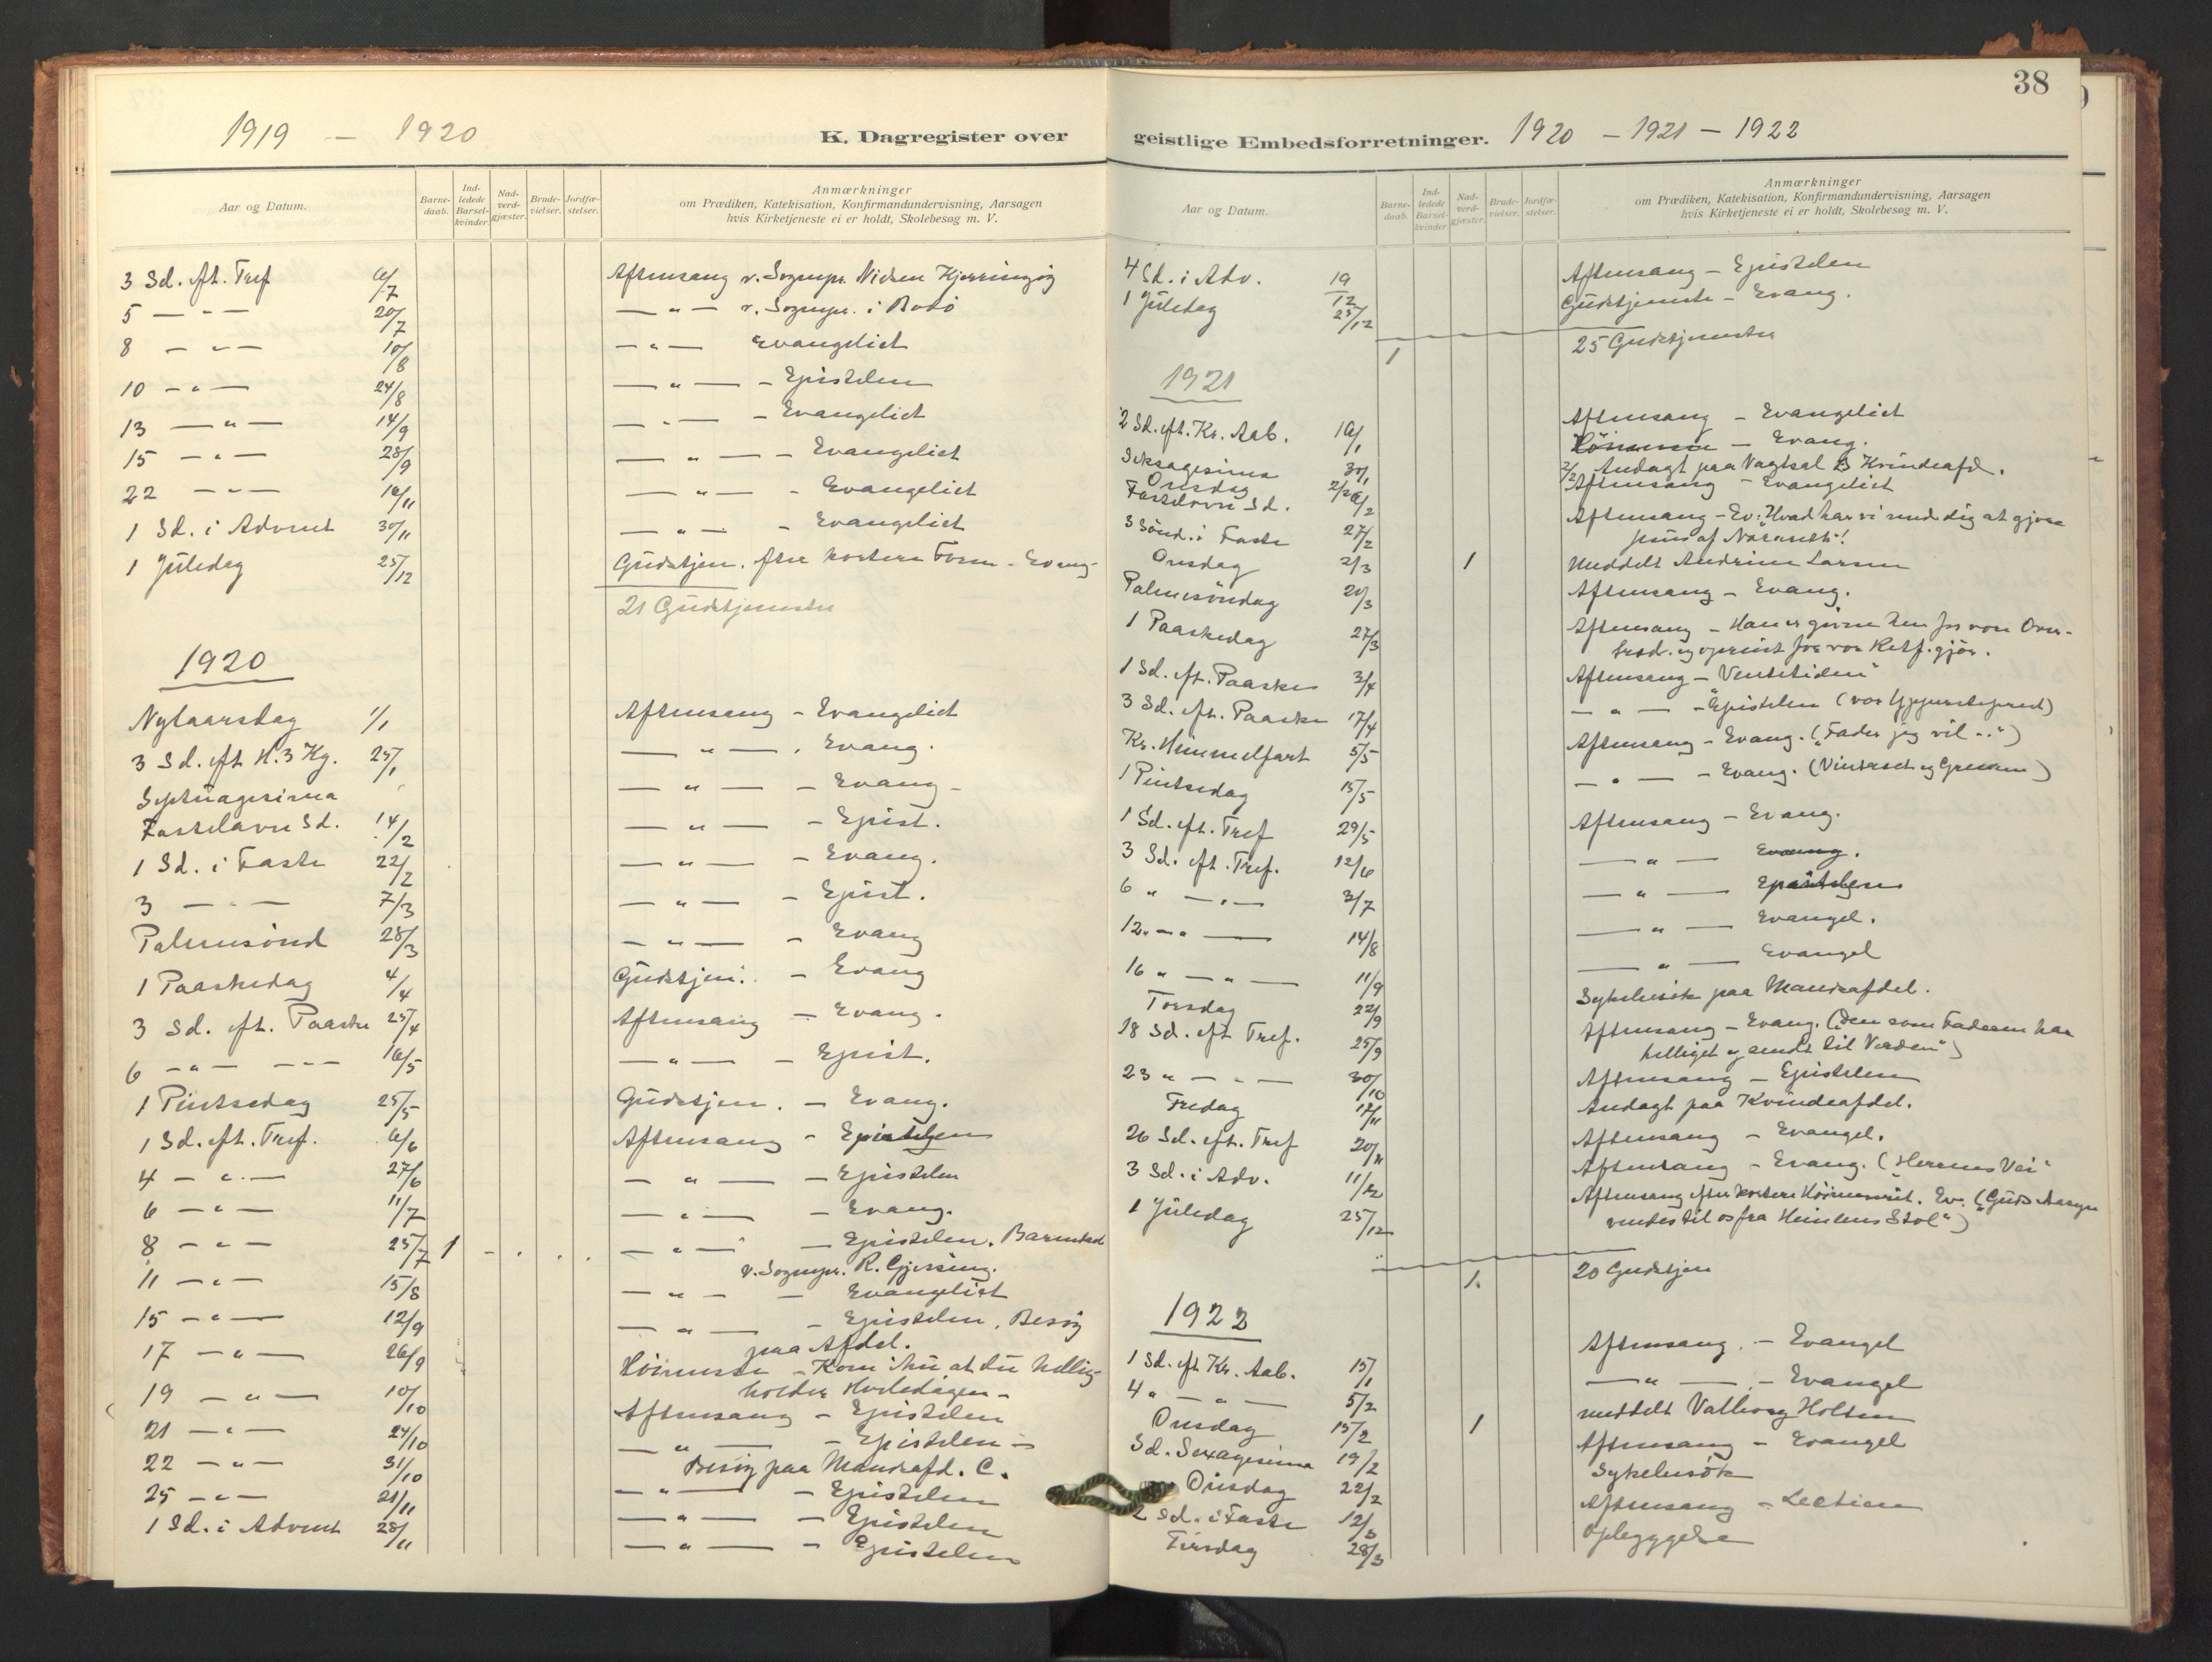 1919 — 1920
K. Dagregister over
Aar og Datum.
Barne-daab.
Ind-ledede Barsel-kvinder.
Nad-verd-gjæster.
Brude-vielser.
Jordfæ-stelser.
Anmærkninger
om Prædiken, Katekisation, Konfirmandundervisning, Aarsagen
hvis Kirketjeneste ei er holdt, Skolebesøg m. V.
3 Sd. eft. Tref 6/7 Aftensang v. Sognepr. Nielsen Kjerringøy
5 — " — 20/7 — " — v. Sognepr. i Bodö
8 — " — 10/8 — " — Evangeliet
10 — " — 24/8 — " — – Epistelen
13 — " — 14/9 — " — – Evangeliet
15 — " — 28/9 — " — – Evangeliet
22 — " — 16/11 — " — – Evangeliet
1 Sd. i Advent 30/11 — " — – Evangeliet
1 Juledag 25/12 Gudstjen. efter kortere Form – Evang.
21 Gudstjenester
1920
Nytaarsdag 1/1 Aftensang – Evangeliet
3 Sd. eft H. 3 Kg. 25/1 — " — . Evang.
Septuagesima — " — – Evang –
Fastelavns Sd. 14/2 — " — – Epist.
1 Sd. i Faste 22/2 — " — – Evang.
3 — " — 7/3 — " — – Epist.
Palmesönd 28/3 — " — – Evang
1 Paaskedag 4/4 Gudstjen. – Evang
3 Sd. eft. Paaske 25/4 Aftensang – Evang.
6 — " — 16/5 — " — – Epist.
1 Pintsedag 25/5 Gudstjen. – Evang.
1 Sd. eft. Tref. 6/6 Aftensang – Epistelen
4 — " — 27/6 — " — – Epistelen
6 — " — 11/7 — " — – Evang.
8 — " — 25/7 1 — " — – Epistelen. Barnedaab
v. Sognepr. R. Gjessing.
11 — " — 15/8 — " — – Evangeliet
15 — " — 12/9 — " — – Epistelen, Besög
paa Afdel.
17 — " — 26/9 Höimesse – Kom ihu at du hellig-
holder Hviledagen –
19 — " — 10/10 Aftensang – Epistelen
21 — " — 24/10 — " — – Epistelen –
22 — " — 31/10 Besög paa Mandsafd. C.
25 — " — 21/11 — " — – Epistelen
1 Sd. i Advent 28/11 — " — – Epistelen
— " — – Epistelen
38
geistlige Embedsforretninger. 1920 – 1921 – 1922
Aar og Datum.
Barne-daab.
Ind-ledede Barsel-kvinder
Nad-verd-gjæster.
Brude-vielser.
Jordfæ-stelser.
Anmærkninger
om Prædiken, Katekisation, Konfirmandundervisning, Aarsagen
hvis Kirketjeneste ei er holdt, Skolebesøg m. V.
4 Sd. i Adv. 19/12 Aftensang – Epistelen
1 Juledag 25/12 Gudstjeneste – Evang.
1 25 Gudstjenester
1921
2 Sd. eft. Kr. Aab. 16/1 Aftensang – Evangeliet
Seksagesima 30/1 Höimesse – Evang.
Onsdag 2/2 2/2 Andagt paa Vagtsal B Kvindeafd.
Fastelavns Sd. 6/2 Aftensang – Evangeliet
3 Sönd. i Faste 27/2 Aftensang – Ev: "Hvad har vi med dig at gjöre
Jesus af Nasaret"!
Onsdag 2/3 1 Meddelt Andrine Larsen
Palmesöndag 20/3 Aftensang – Evang.
1 Paaskedag 27/3 Aftensang – Han er given hen for vore Over-
træd. og opreist for vor Retf.gjör.
1 Sd. eft. Paaske 3/4 Aftensang – "Ventetiden"
3 Sd. eft. Paaske 17/4 — " — – Epistelen (vor Ypperstepræst)
Kr. Himmelfart 5/5 Aftensang – Evang. ("Fader jeg vil ..")
1 Pintsedag 15/5 — " — – Evang. (Vintræet og Grenene)
1 Sd. eft. Tref 29/5 Aftensang – Evang.
3 Sd. eft. Tref. 12/6 — " — Evang.
6 " — " — 3/7 — " — Epistelen
12 " — " — 14/8 — " — Evangel.
16 " — " — 11/9 — " — Evangel
Torsdag 22/9 Sykebesök paa Mandsafdel.
18 Sd. eft Tref. 25/9 Aftensang – Evang. ("Den som Faderen har
helliget og sendt til Verden")
23 " — " — 30/10 Aftensang – Epistelen
Fredag 17/11 Andagt paa Kvindeafdel.
26 Sd. eft. Tref 20/11 Aftensang – Evangel.
3 Sd. i Adv. 11/12 Aftensang – Evang. ("Herrens Vei"
1 Juledag 25/12 Aftensang efter kortere Höimesserit. Ev. ("Guds Aasyn
vendes til os fra Himlens Stol")
1. 20 Gudstjen
1922
1 Sd. eft Kr. Aab. 15/1 Aftensang. – Evangel
4 " — " — 5/2 — " — – Evangel
Onsdag 15/2 1 meddelt Valborg Holten
Sd. Sexagesima 19/2 Aftensang – Evangel
Onsdag 22/2 Sykebesök
2 Sd. i Faste 12/3 Aftensang – Lectien
Tirsdag 28/3 Opbyggelse